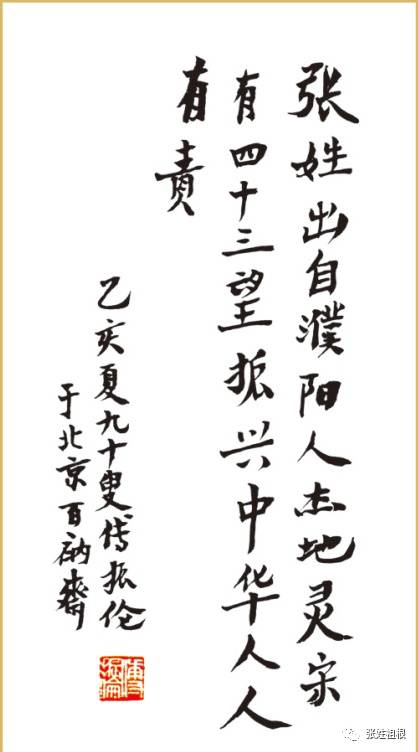 张姓出自濮阳人杰地灵宗
有四十三望振兴中华人人
有责
乙亥夏九十叟傅振伦
于北京百衲斋
傅振倫
张姓祖根